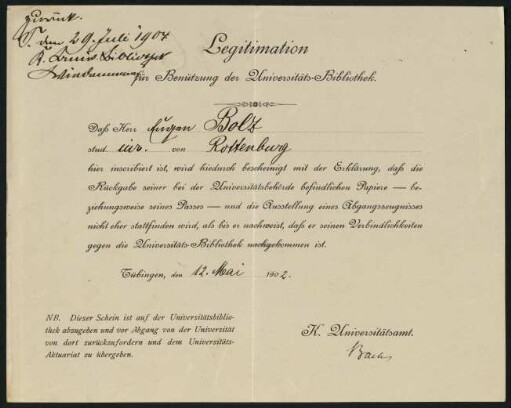 zurück.
T. den 29. Juli 1904
K. Univ. Bibliothek
Legitimation
für Benützung der Universitäts-Bibliothek.
Daß Herr Eugen Bolz
stud. iur. von Rottenburg
hier inscribiert ist, wird hiedurch bescheinigt mit der Erklärung, daß die
Rückgabe seiner bei der Universitätsbehörde befindlichen Papiere — be-
ziehungsweise seines Passes — und die Ausstellung eines Abgangszeugnisses
nicht eher stattfinden wird, als bis er nachweist, daß er seinen Verbindlichkeiten
gegen die Universitäts-Bibliothek nachgekommen ist.
Tübingen, den 12. Mai 1902.
NB. Dieser Schein ist auf der Universitätsbiblio-
thek abzugeben und vor Abgang von der Universität
von dort zurückzufordern und dem Universitäts-
Aktuariat zu übergeben.
K. Universitätsamt.